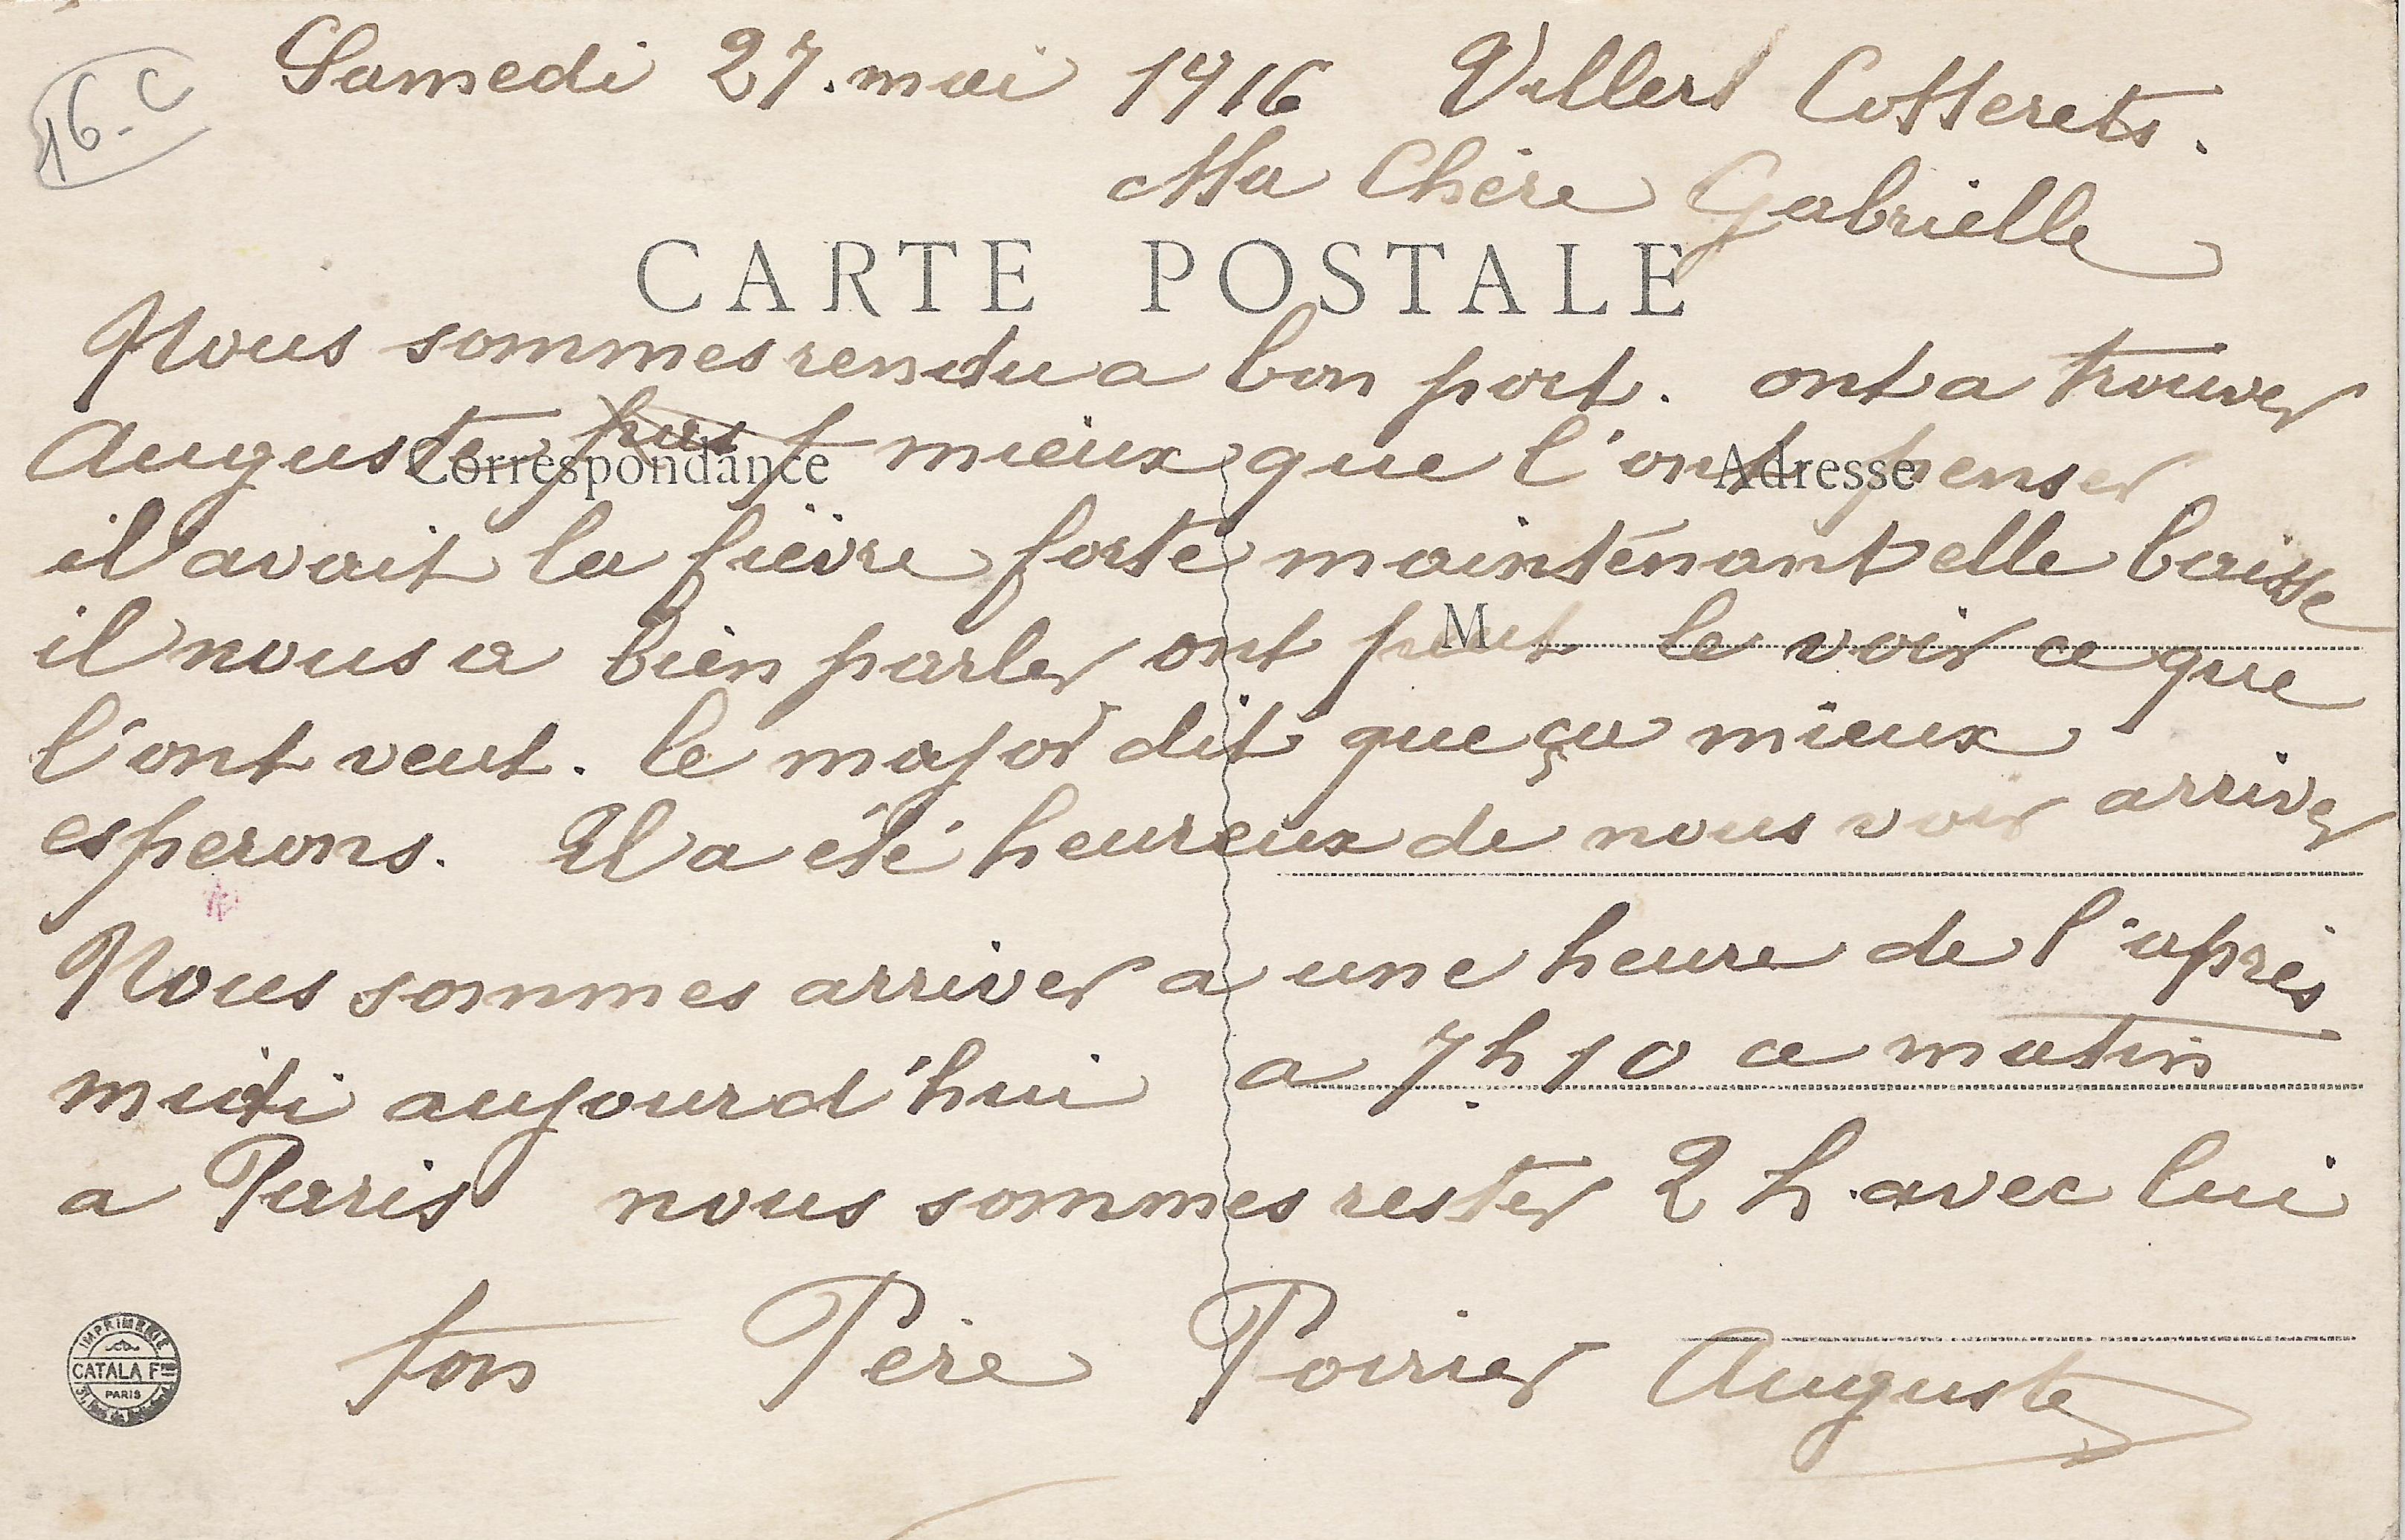 16-C
Samedi 27. mai 1916 Villers Cotterets.
Ma Chère Gabrielle
CARTE POSTALE
Nous sommes rendu a bon port. ont a trouver
Auguste pas mieux que l'ont penser
Correspondance
Adresse
il avait la fièvre forte maintenant elle baisse
il nous a bien parler ont peut le voir ce que
M
l'ont veut. le major dit que ça mieux
esperons. Il a été heureux de nous voir arriver
Nous sommes arriver a une heure de l'après
midi aujourd'hui a 7h10 ce matin
a Paris nous sommes rester 2 h. avec lui
ton Père Poirier Auguste
IMPRIMERIE
CATALA Fres
PARIS